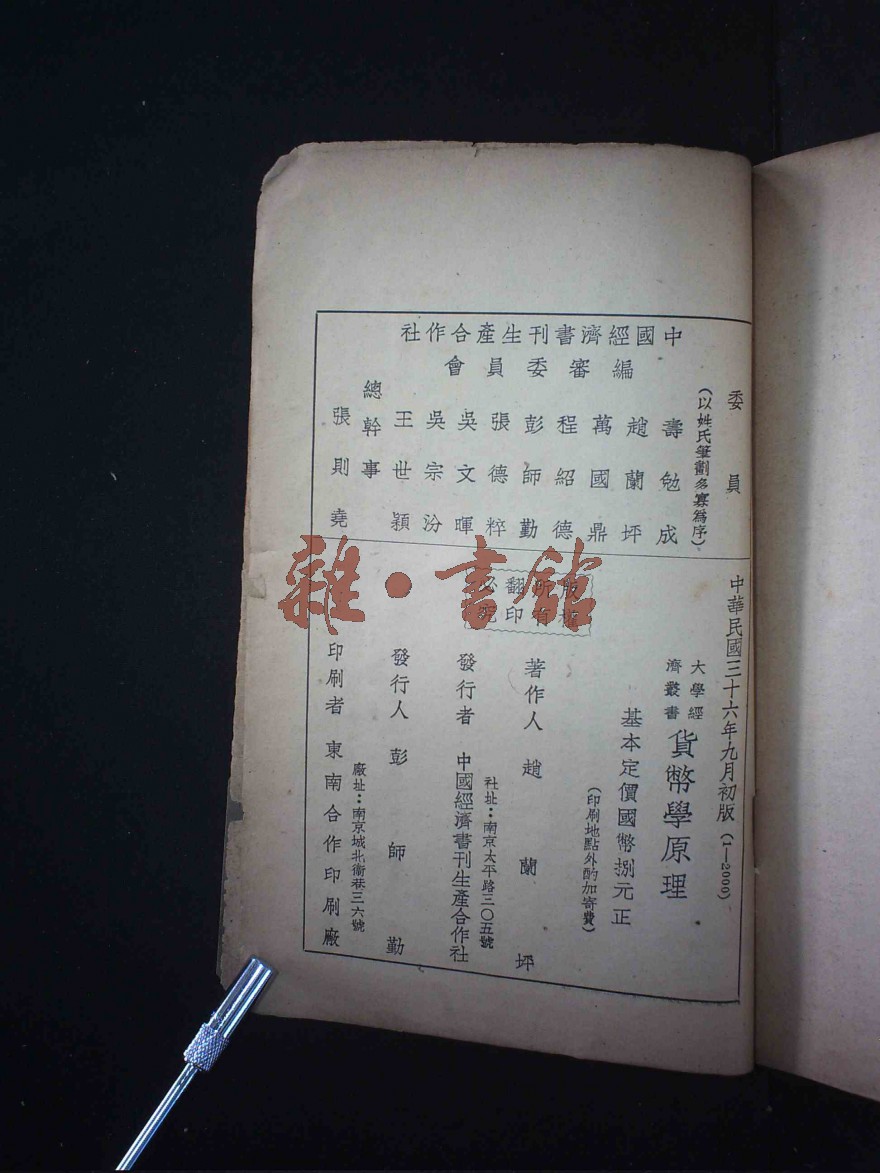 中國經濟書刊生產合作社
編審委員會
委員
（以姓氏筆劃多寡為序）
壽勉成
趙蘭坪
萬國鼎
程紹德
彭師勤
張德粹
吳文暉
吳宗汾
王世穎
總幹事
張則堯
中華民國三十六年九月初版（1—2000）
大學經濟叢書
貨幣學原理
基本定價國幣捌元正
（印刷地點外酌加寄費）
版權所有
翻印必究
著作人 趙蘭坪
社址：南京太平路三〇五號
發行者 中國經濟書刊生產合作社
發行人 彭師勤
廠址：南京城北衛巷三六號
印刷者 東南合作印刷廠
雜·書館